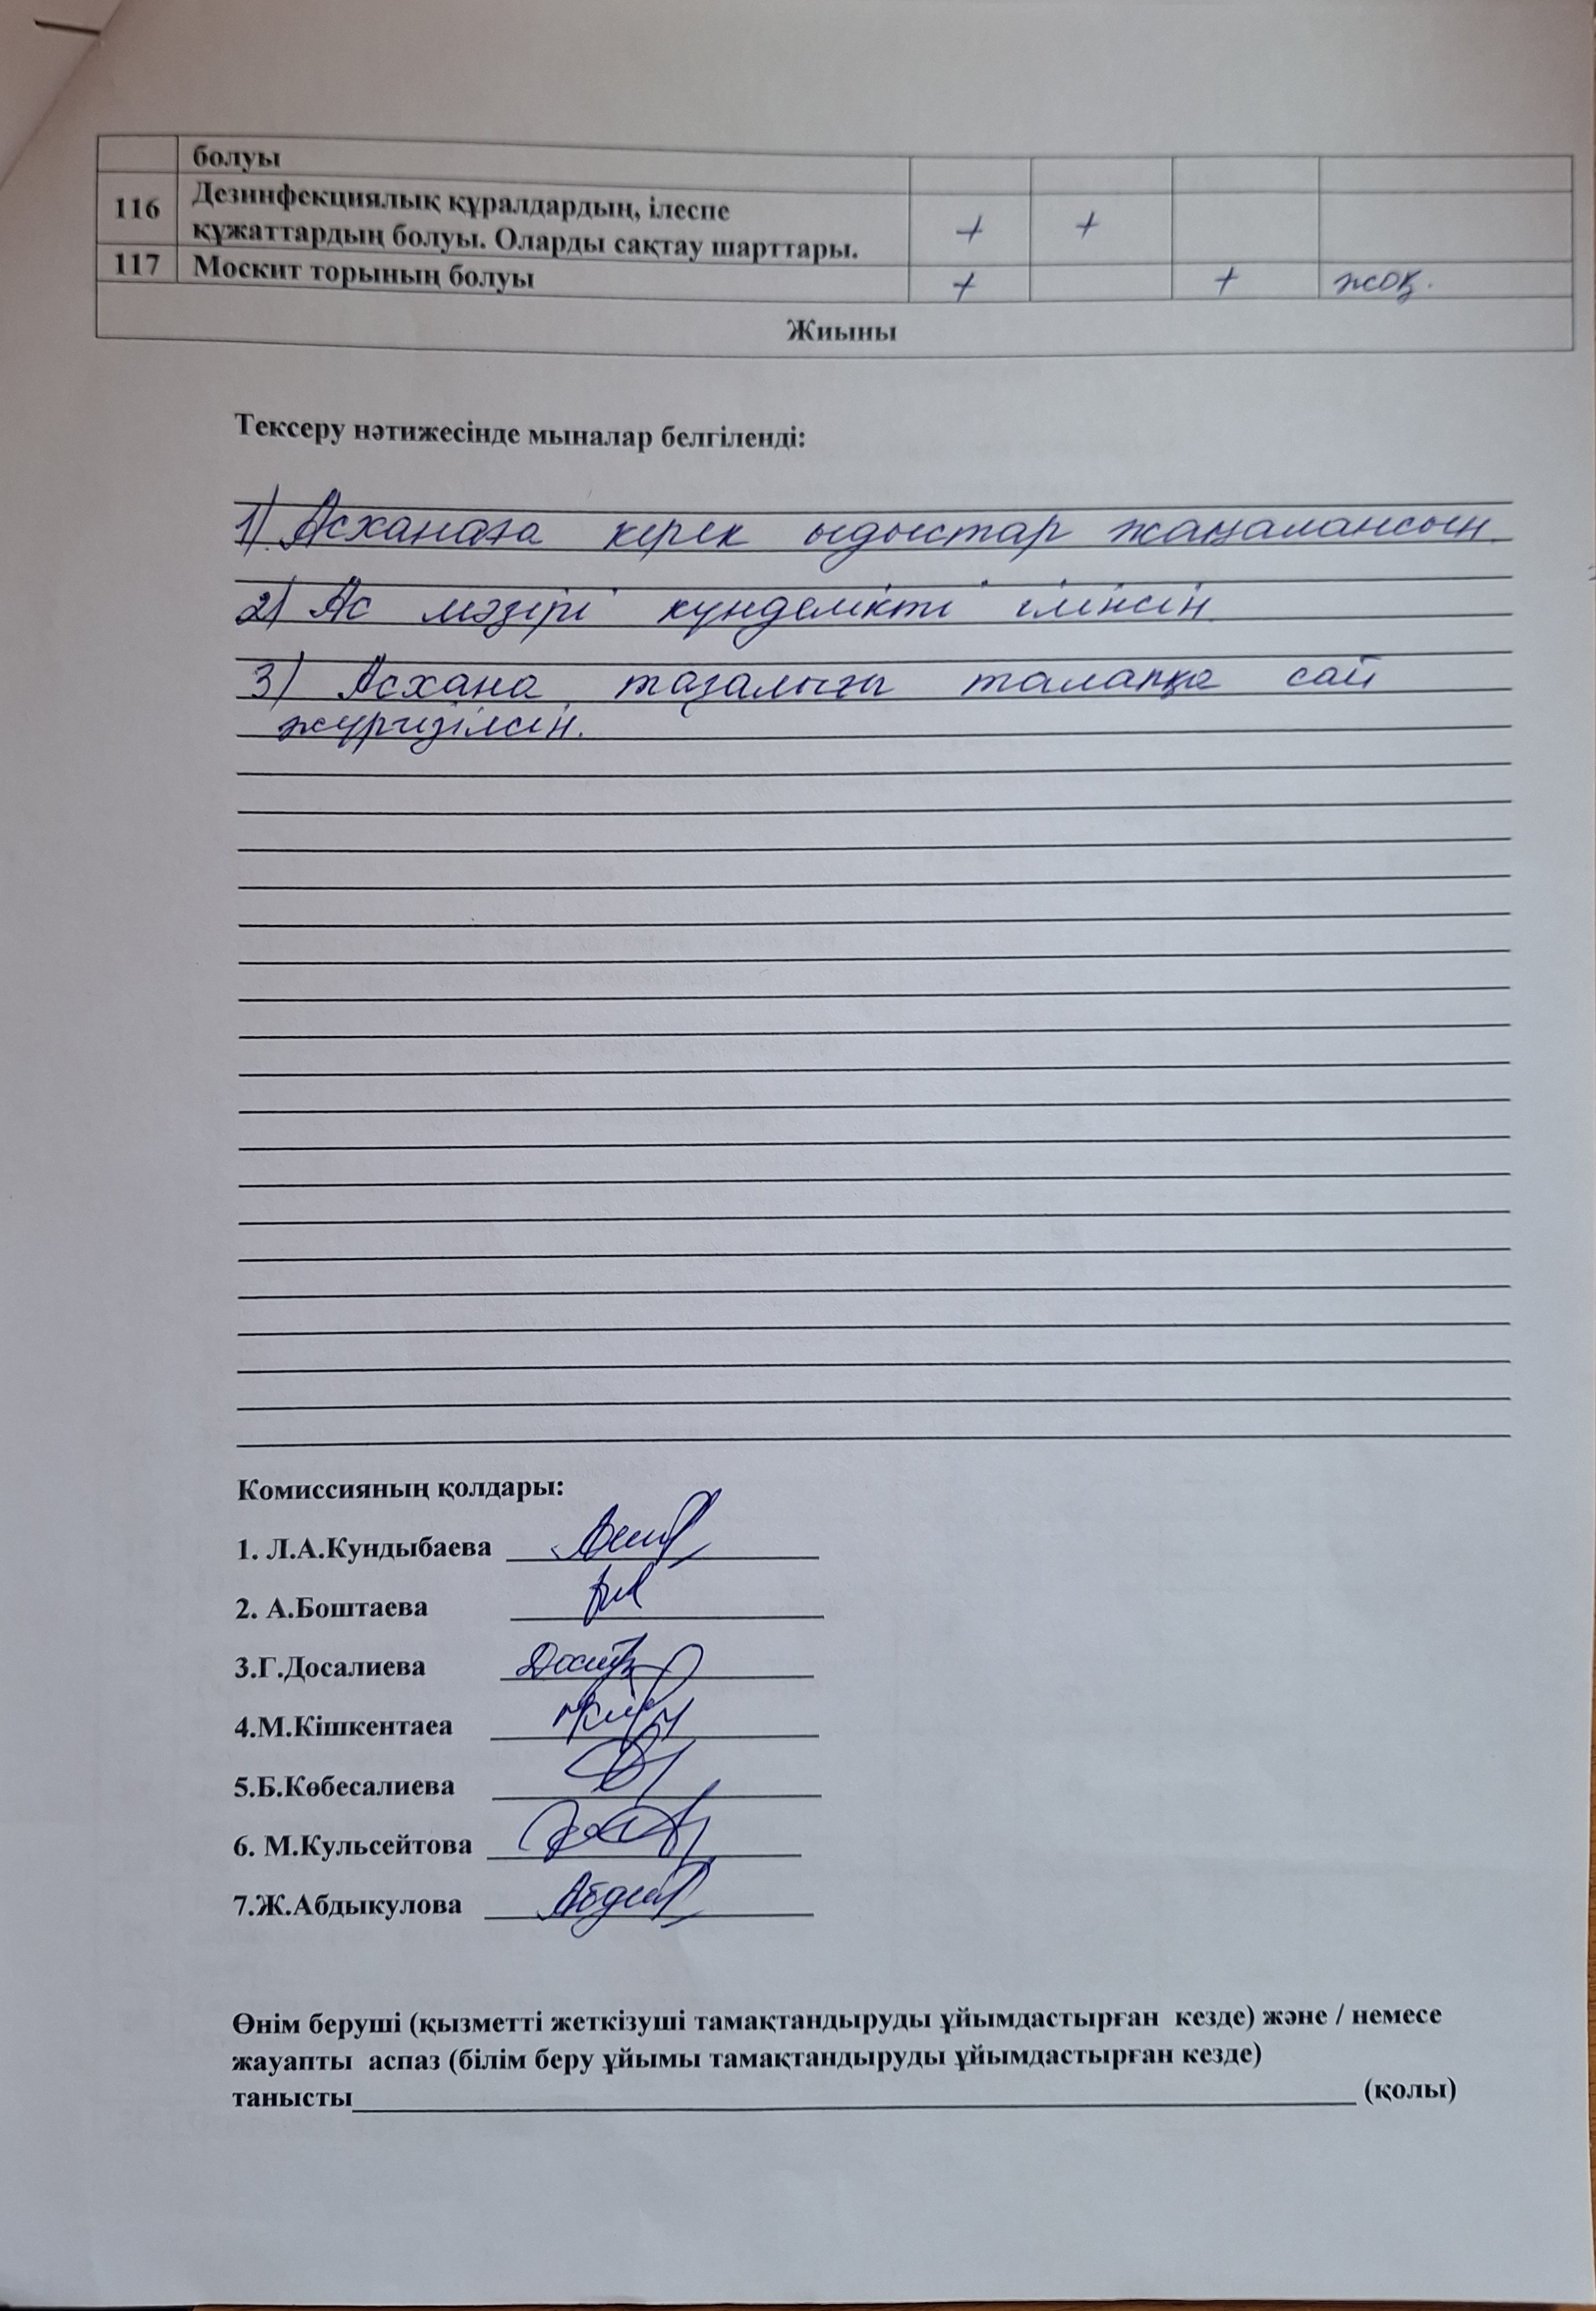 болуы
116 Дезинфекциялық құралдардың, ілеспе
құжаттардың болуы. Оларды сақтау шарттары. + +
117 Москит торының болуы + + жоқ.
Жиыны
Тексеру нәтижесінде мыналар белгіленді:
1) Асханаға керек ыдыстар жаңалансын.
2) Ас мәзірі күнделікті ілінсін.
3) Асхана тазалығы талапқа сай
жүргізілсін.
Комиссияның қолдары:
1. Л.А.Кундыбаева
2. А.Боштаева
3.Г.Досалиева
4.М.Кішкентаеа
5.Б.Көбесалиева
6. М.Кульсейтова
7.Ж.Абдыкулова
Өнім беруші (қызметті жеткізуші тамақтандыруды ұйымдастырған кезде) және / немесе
жауапты аспаз (білім беру ұйымы тамақтандыруды ұйымдастырған кезде)
танысты (қолы)